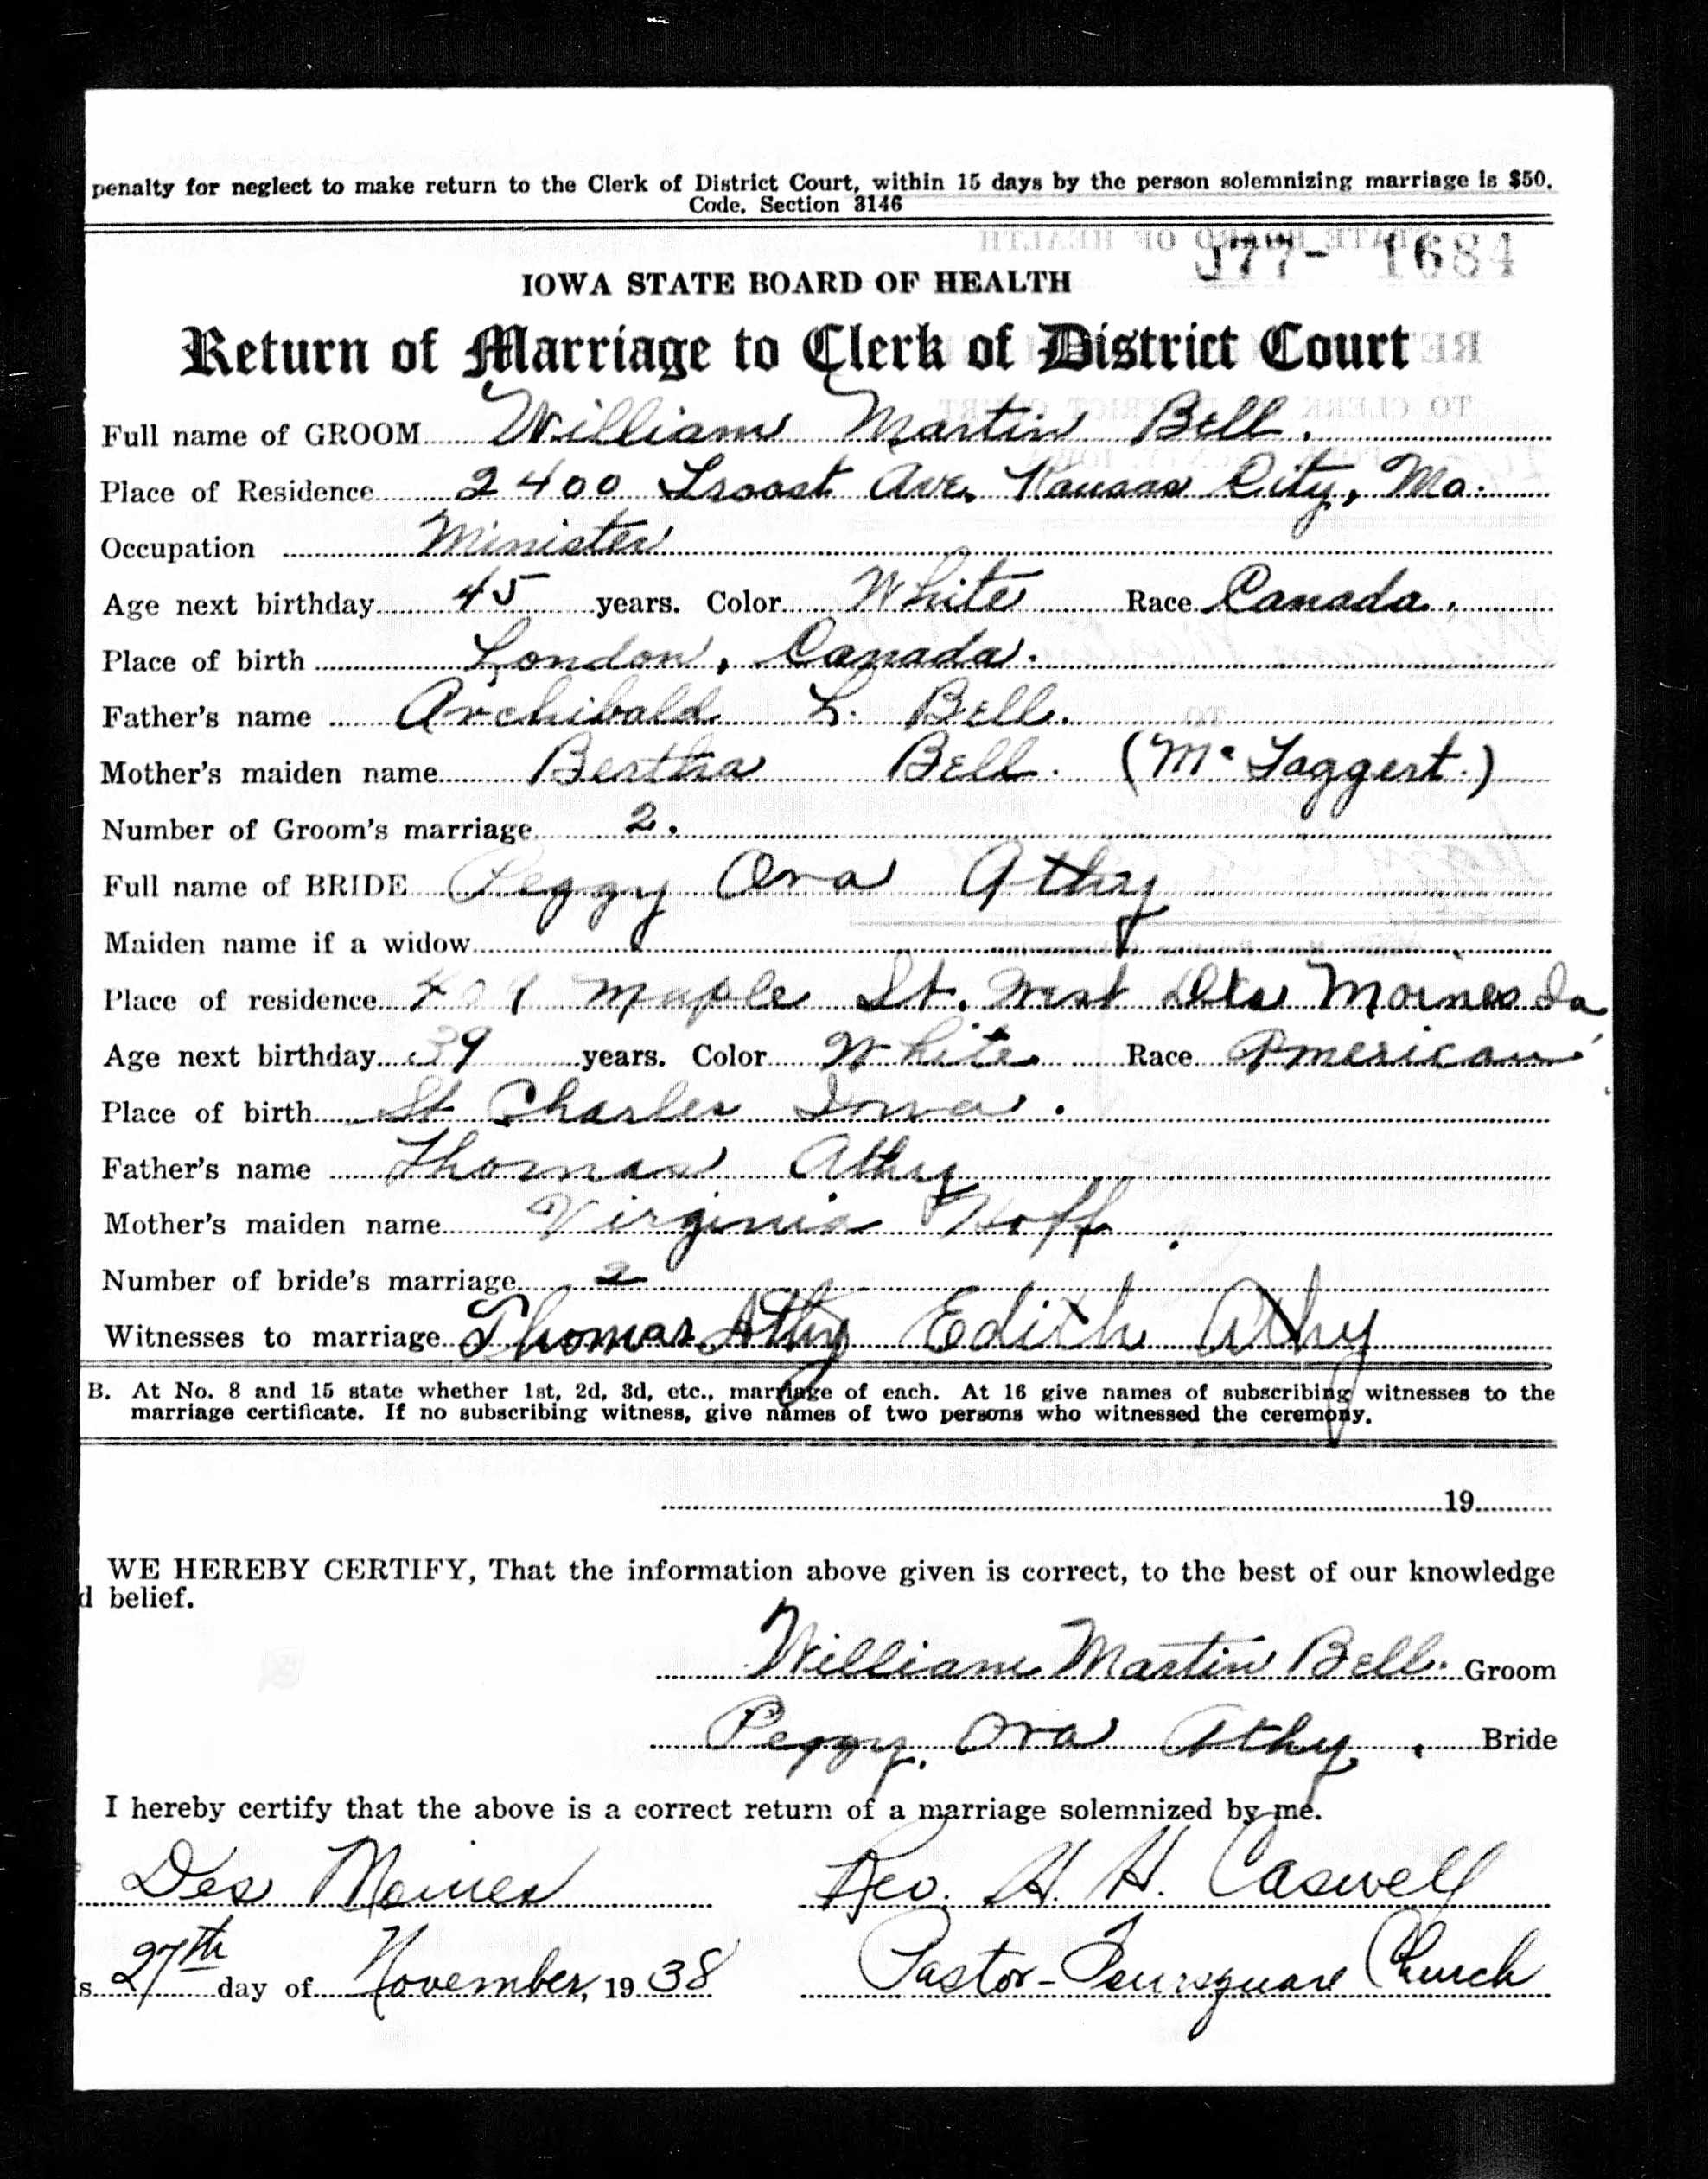 penalty for neglect to make return to the Clerk of District Court, within 15 days by the person solemnizing marriage is $50.
Code, Section 3146
J77- 1684
IOWA STATE BOARD OF HEALTH
Return of Marriage to Clerk of District Court
Full name of GROOM William Martin Bell.
Place of Residence 2400 Troost Ave. Kansas City, Mo.
Occupation Minister
Age next birthday 45 years. Color White Race Canada.
Place of birth London, Canada.
Father's name Archibald L. Bell.
Mother's maiden name Bertha Bell. (Mc Taggert.)
Number of Groom's marriage 2.
Full name of BRIDE Peggy Ora Athy
Maiden name if a widow
Place of residence Maple St. West Des Moines Ia.
Age next birthday 39 years. Color White Race American
Place of birth St Charles Iowa.
Father's name Thomas Athy
Mother's maiden name Virginia Hoff.
Number of bride's marriage 2
Witnesses to marriage Thomas Athy Edith Athy
B. At No. 8 and 15 state whether 1st, 2d, 3d, etc., marriage of each. At 16 give names of subscribing witnesses to the
marriage certificate. If no subscribing witness, give names of two persons who witnessed the ceremony.
19
WE HEREBY CERTIFY, That the information above given is correct, to the best of our knowledge
d belief.
William Martin Bell. Groom
Peggy. Ora Athy. Bride
I hereby certify that the above is a correct return of a marriage solemnized by me.
Des Moines Rev. H. H. Caswell
s 27th day of November, 1938 Pastor-Foursquare Church